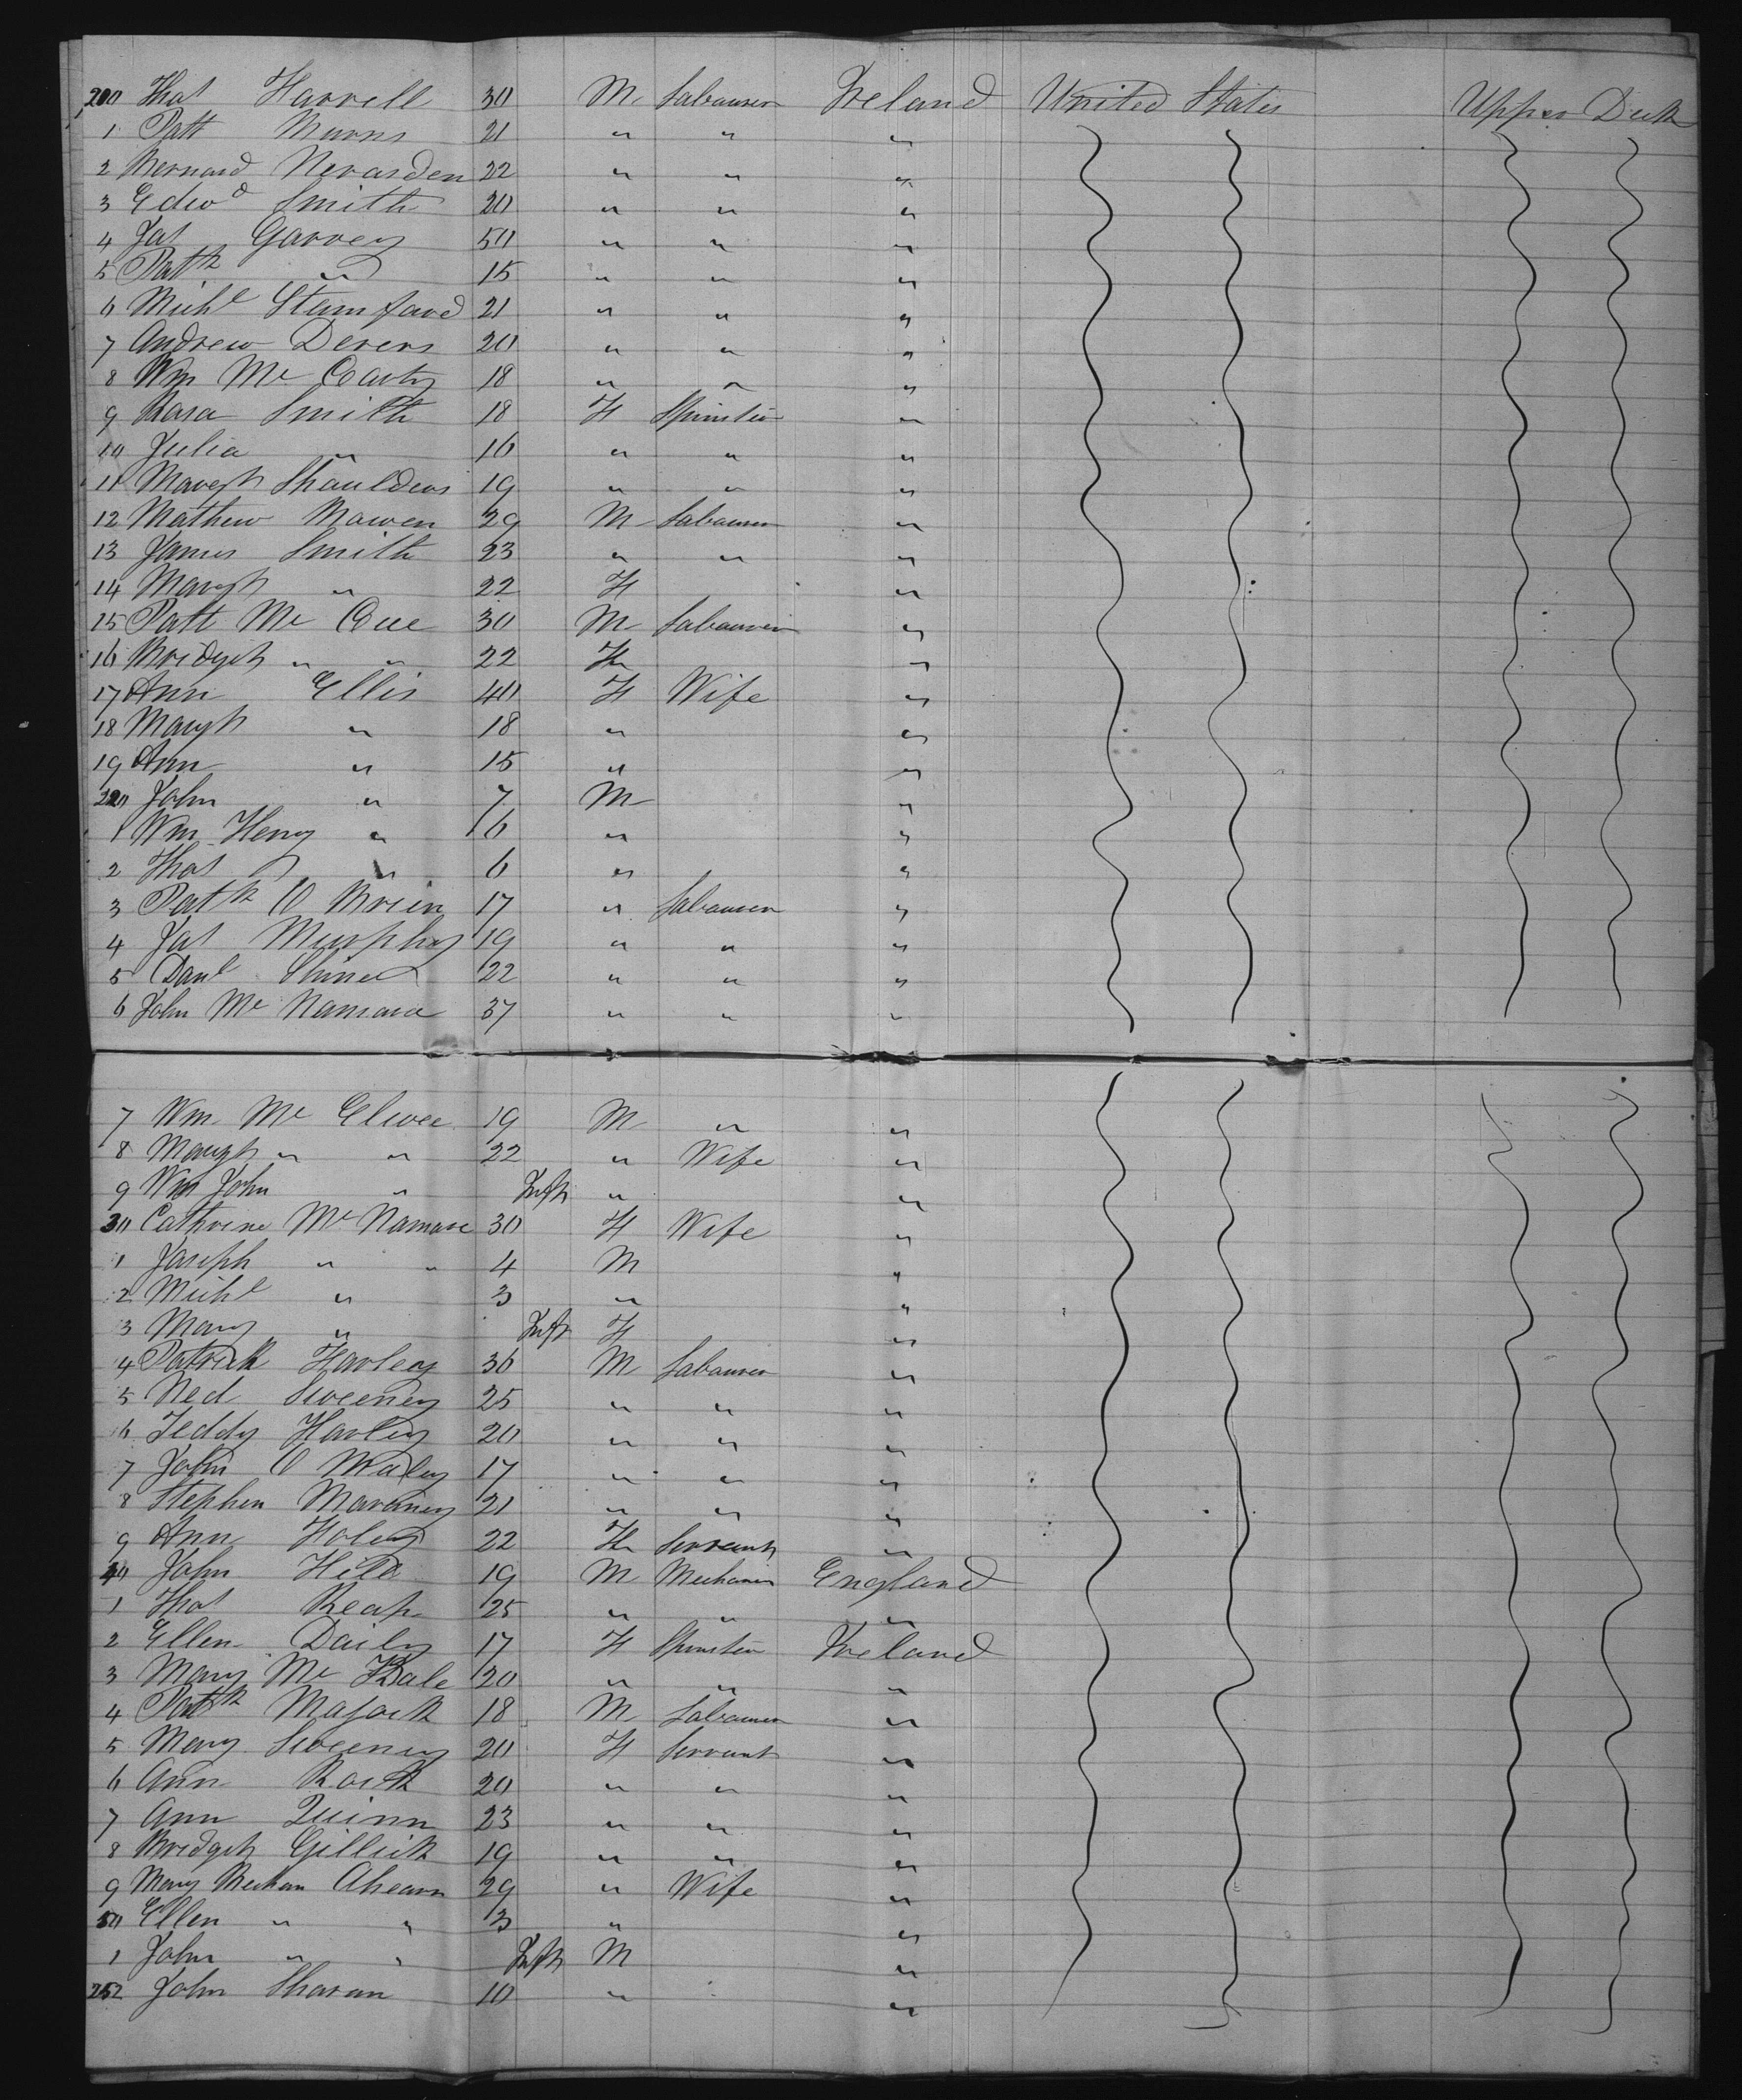 200 Thos Harrell 30 M Labourer Ireland United States Upper Deck
1 Patt Murns 21 " " "
2 Bernard Nevarden 22 " " "
3 Edwd Smith 20 " " "
4 Jas Garvey 50 " " "
5 Patk " 15 " " "
6 Michl Stamford 21 " " "
7 Andrew Devers 20 " " "
8 Wm Mc Carty 18 " " "
9 Rosa Smith 18 F Spinster "
10 Julia " 16 " " "
11 Margt Shaulders 19 " " "
12 Mathew Bowen 29 M Labourer "
13 James Smith 23 " " "
14 Margt " 22 F "
15 Patt Mc Cue 30 M Labourer "
16 Bridget " " 22 F "
17 Ann Ellis 40 F Wife "
18 Margt " 18 " "
19 Ann " 15 " "
220 John " 7 M "
1 Wm Henry " 6 " "
2 Thos " 6 " "
3 Patk O Brien 17 " Labourer "
4 Jas Murphy 19 " " "
5 Danl Shine 22 " " "
6 John Mc Namara 37 " " "
7 Wm Mc Elwee 19 M " "
8 Margt " " 22 " Wife "
9 Wm John " Inft " "
30 Cathrine Mc Namara 30 F Wife "
1 Joseph " " 4 M "
2 Michl " 3 " "
3 Mary " Inft F "
4 Patrick Harley 36 M Labourer "
5 Ned Sweeney 25 " " "
6 Teddy Harley 20 " " "
7 John O Maley 17 " " "
8 Stephen Maroney 21 " " "
9 Ann Foley 22 F Servant "
40 John Hill 19 M Mechanic England
1 Thos Reap 25 " " "
2 Ellen Daily 17 F Spinster Ireland
3 Mary Mc Hale 20 " " "
4 Patk Majork 18 M Labourer "
5 Mary Sweeney 20 F Servant "
6 Ann Rork 20 " " "
7 Ann Quinn 23 " " "
8 Bridget Gillick 19 " " "
9 Mary Meehan Ahearn 29 " Wife "
50 Ellen " " 3 " "
1 John " " Inft M "
252 John Sharan 10 " "